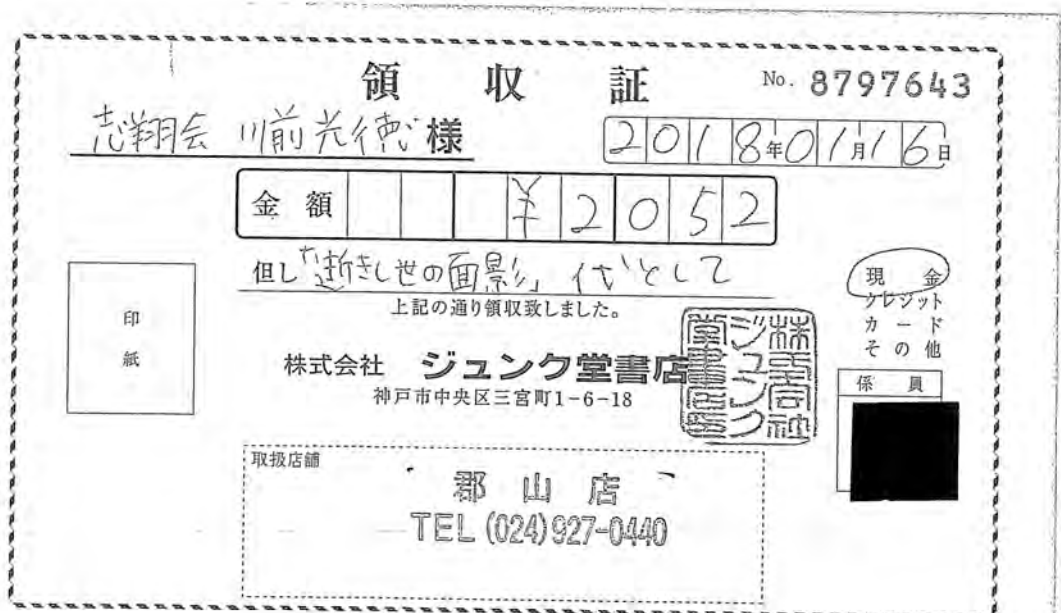 領収証 No. 8797643
志翔会 川前光徳 様 2018年01月16日
金額 ¥2052
但し「逝きし世の面影」代として
上記の通り領収致しました。
現金
クレジット
カード
その他
印紙
株式会社 ジュンク堂書店
神戸市中央区三宮町1-6-18
株式会社ジュンク堂書店印
係員
取扱店舗
郡山店
TEL (024)927-0440